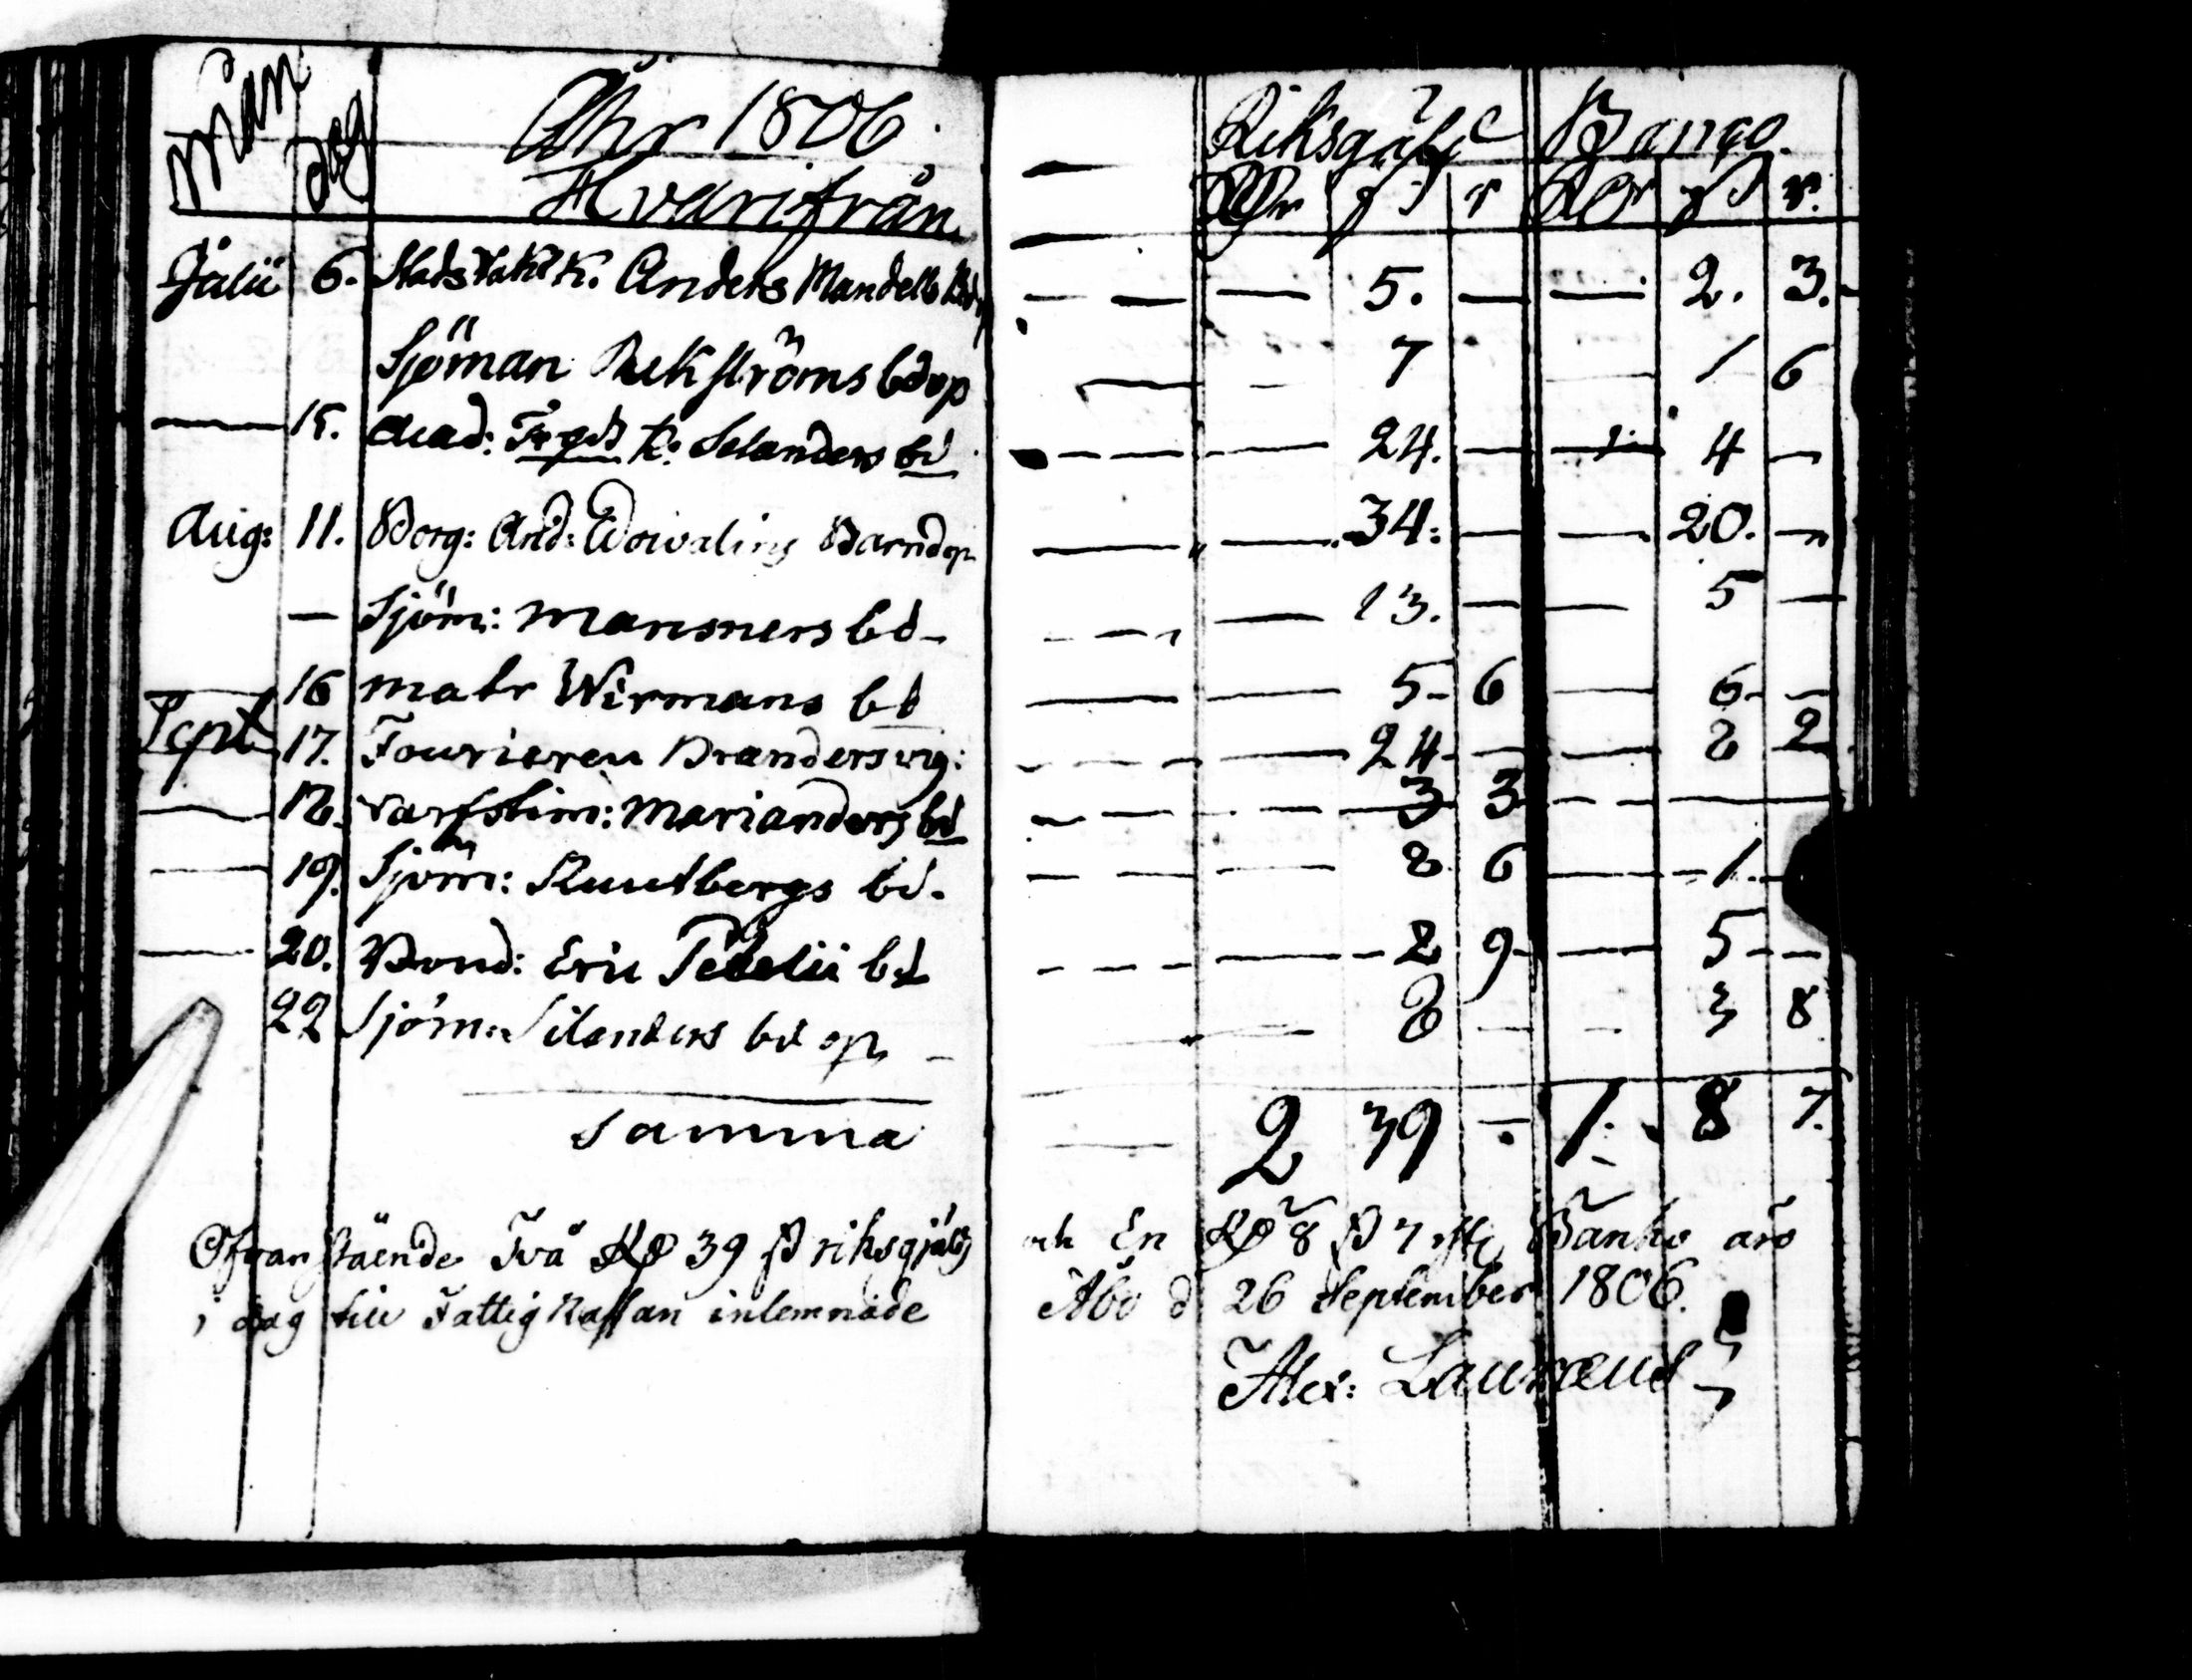 Mån Dag Åhr 1806. Riksgälds Banco.
Hvarifrån Rdr ß r Rdr ß r.
Julii 6. Stads Vakt K. Anders Mandells Bd — — — 5. — — 2. 3.
Sjöman Rekströms bdop — — 7 — 1 6
— 15. Acad: K: Selanders bd — — — 24. — — 4 —
Aug: 11. Borg: And: Barndop — — 34: — — 20. —
— Sjöm: Mansners bd — — — 13. — — 5 —
16 matr Wirmans bd — — 5 6 — 6 —
Sept 17. Fourieren Branders vig: — — — 24 — — 8 2
— 18. varfstim: Marianders bd — — — 3 3 — — —
— 19. Sjöm: Knutbergs bd. — — — 8 6 — 1. —
— 20. Bond: Eric bd — — — 2 9 — 5 —
22 Sjöm: Silanders bd op — — 8 — — 3 8
Summa — 2 39 — 1. 8 7.
Ofvanstående Två Rd 39 ß riksgjälds och En Rd 8 ß 7 Banko äro
i dag till Fattig Kassan inlemnade Åbo d 26 September 1806.
Alex: Lauræus